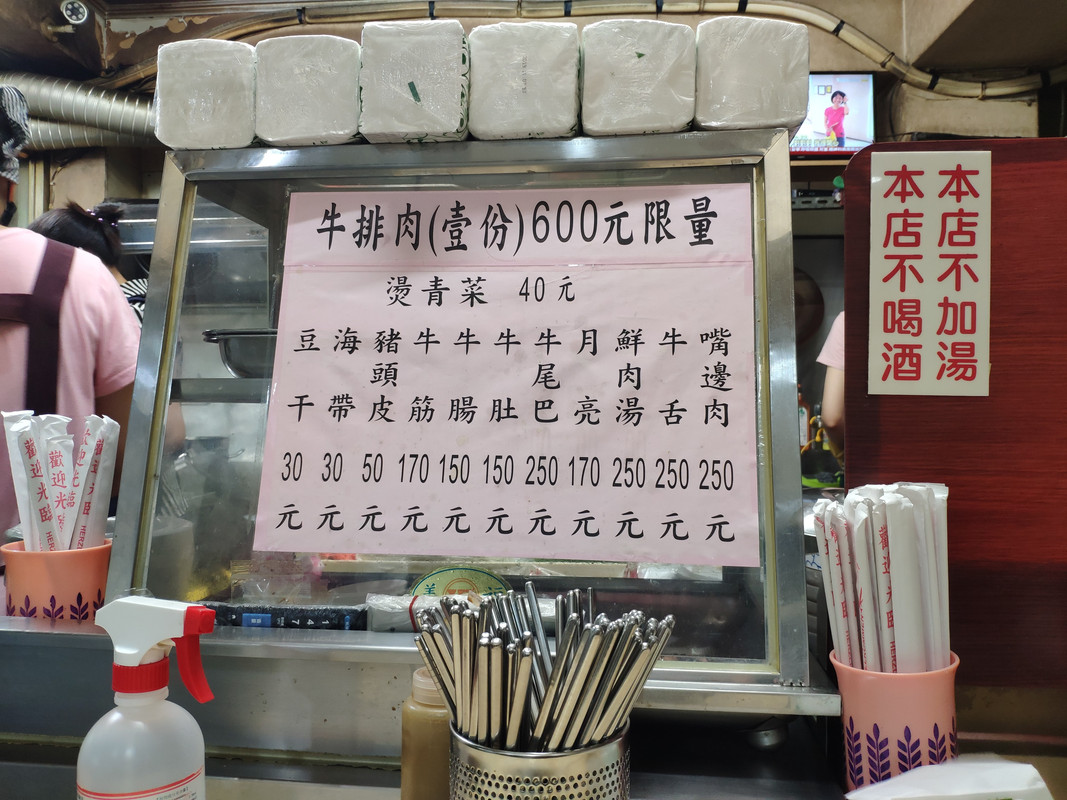 牛排肉(壹份)600元限量
燙青菜 40元
嘴邊肉 250元
牛舌 250元
鮮肉湯 250元
月亮 170元
牛尾巴 250元
牛肚 150元
牛腸 150元
牛筋 170元
豬頭皮 50元
海帶 30元
豆干 30元
本店不加湯
本店不喝酒
歡迎光臨
歡迎光臨
歡迎光臨